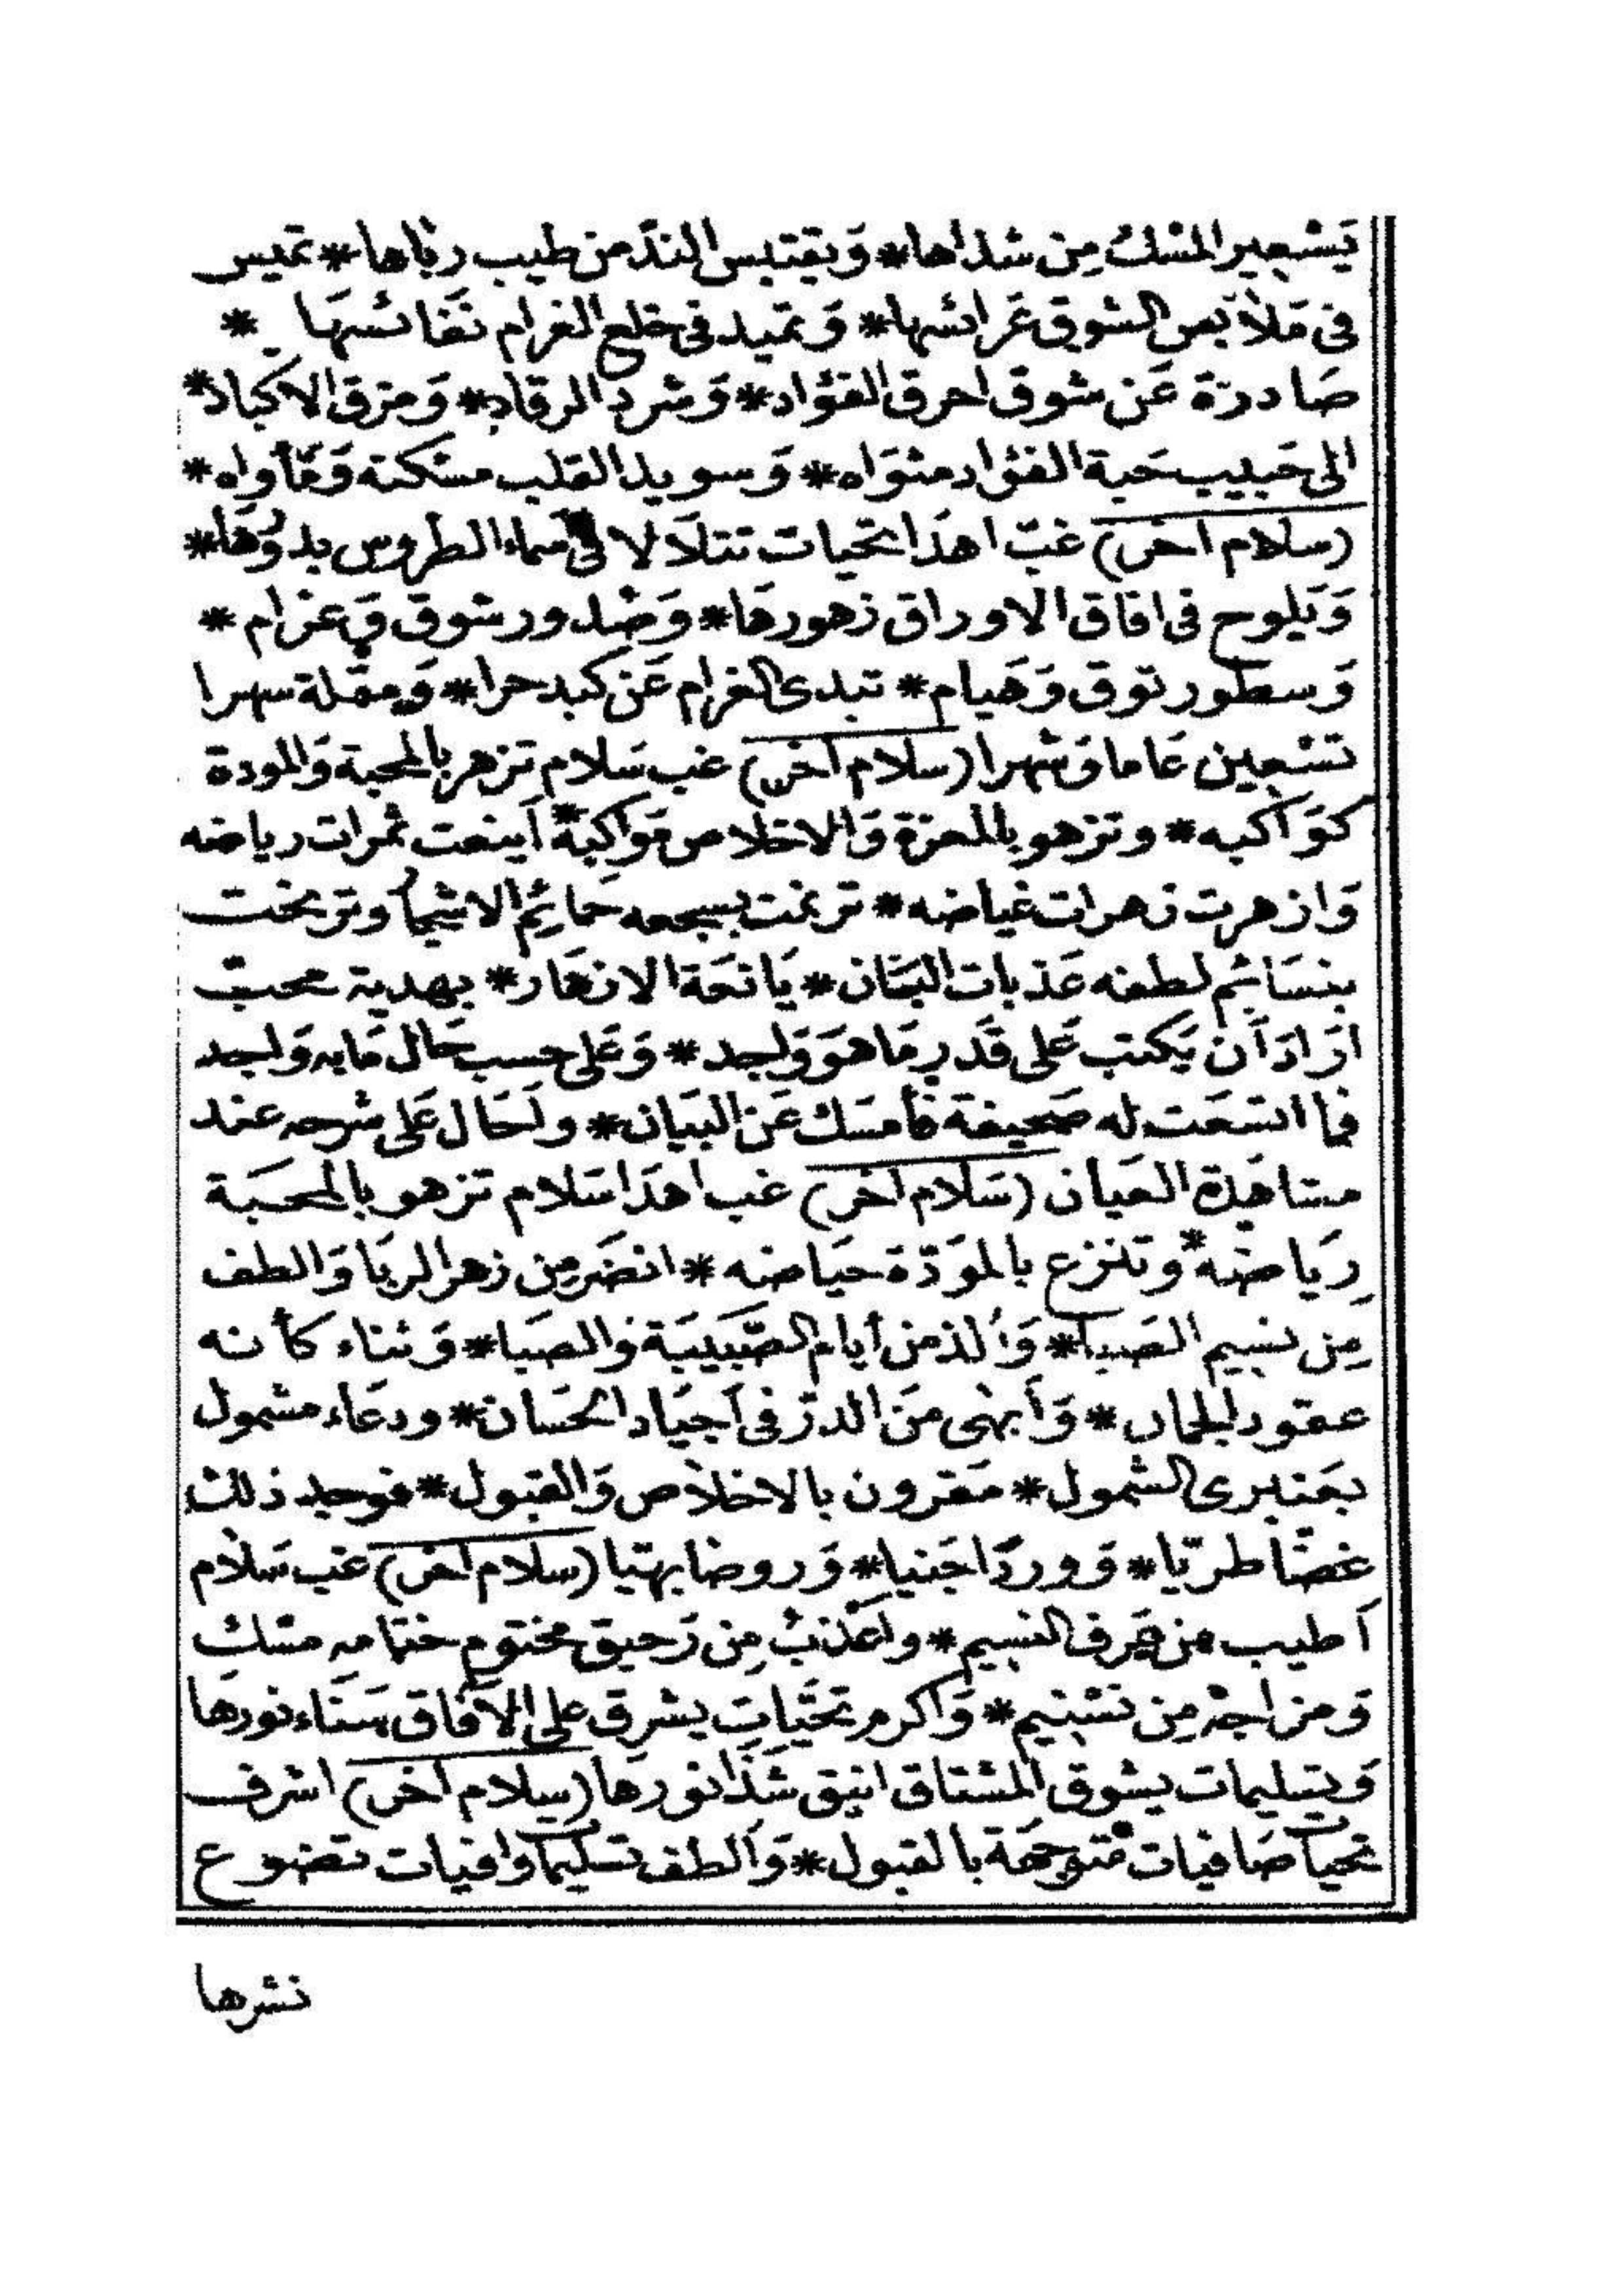 يَسْتعير المسْكُ مِن شداها* وَيقتبس الندّ من طيب رياها* تميس
فى مَلَابس الشوق عَرائسها* وَتميد فى خلع الغرام نفائسهَا *
صَادرَة عَن شوق احرق الفؤاد* وَشرد الرقاد* وَمزق الاكباد*
الى حَبيب حَبة الفؤاد مثوَاه* وَسويدا القلب مسْكنه وَمَأواه*
(سلام اخر) غبّ اهدَا تحيات تتلَالا فى سماء الطروس بدوُرهَا*
وَيَلوح فى افاق الاوراق زهورهَا* وَصْدور شوق وَغرام *
وَسطور توق وَهَيام* تبدى الغرام عَن كبد حرا* وَمقلة سهرا
تسْعين عَاما وَشهرا (سلام اخر) غب سَلام تزهر بالمحبة وَالمودة
كوَاكبه* وتزهو بالمعزة وَالاخلاص موَاكبهُ* أينعت ثمرات رياضه
وَازهرت زهرات غياضه* ترنمت بسجعه حمائِم الاشجار وترنحت
بنسَائم لطفه عَذبات البَان* يَانعَة الازهَار* بهدية محبّ
ارَادَ أن يَكتب عَلى قَدرِ مَا هوَ وَاجد* وَعَلى حسب حَال مَا به وَاجد
فما اتسَعَت له صَحيفة فأمسَك عَن البَيان* واحَال عَلى شرحه عند
مشاهَدة العيان (سَلام اخر) غب اهدَا سَلام تزهو بالمحبَة
رِيَاضهُ* وتنزع بالموَدّة حيَاضه* انضَر مِن زهر الربَا وَالطف
مِن نسيم الصَبا* وَألذ من أيام الصَّبيبَة وَالصبَا* وَثناء كأنه
عقود الجمان* وَأبهى منَ الدرّ فى أجيَاد الحسَان* ودعَاء مشمول
بعَنبرى الشمول* مقرون بالاخلَاص وَالقبول* فوجد ذلك
غصّا طرّيا* وَورَدًا جَنيا* وَروضا بهيّا (سلام اخر) غب سَلام
أطيب من عَرف النسيم* واعْذبُ مِن رَحيق مختوم ختامه مسْك
وَمزاجه مِن تسْنيم* وَاكرم تحَّيات يشرق على الآفاق سَنَاء نورها
وَتسليمات يشوق المشتاق انيق شَذَا نورهَا (سلام اخر) اشرف
تحيات صَافيات متوجهَة بالقبول* وَألطف تسليمات وافيات تضوع
نشرها